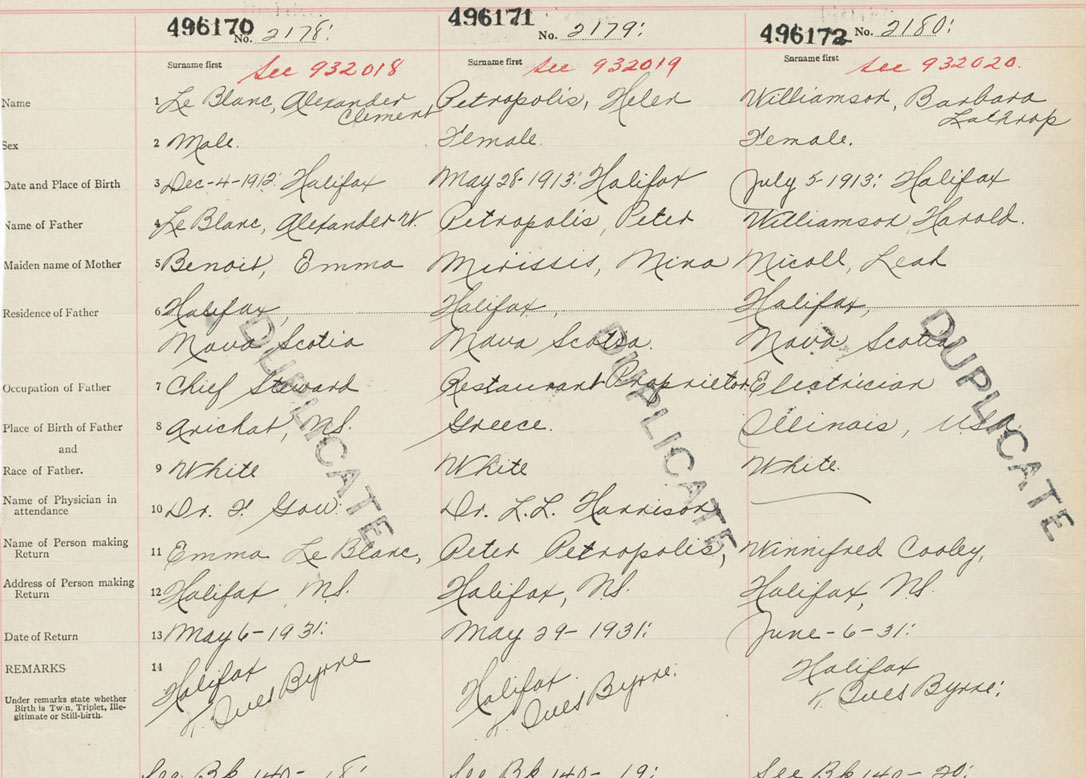 496170 No. 2178: 496171 No. 2179: 496172 No. 2180:
Surname first Surname first Surname first
See 932018 See 932019 See 932020.
Name 1 Le Blanc, Alexander Clement Petropolis, Helen Williamson, Barbara Lathrop
Sex 2 Male. Female. Female.
Date and Place of Birth 3 Dec-4-1912: Halifax May 28-1913: Halifax July 5-1913: Halifax
Name of Father 4 Le Blanc, Alexander W. Petropolis, Peter Williamson, Harold.
Maiden name of Mother 5 Benoit, Emma Mirissis, Nina Nicoll, Leah
Residence of Father 6 Halifax, Halifax, Halifax,
Nova Scotia Nova Scotia. Nova Scotia
DUPLICATE DUPLICATE DUPLICATE
Occupation of Father 7 Chief Steward Restaurant Proprietor Electrician
Place of Birth of Father 8 Arichat, N.S. Greece. Illinois, USA
and
Race of Father. 9 White White White.
Name of Physician in
attendance 10 Dr. F. Gow. Dr. L.L. Harrison
Name of Person making
Return 11 Emma Le Blanc, Peter Petropolis, Winnifred Cooley,
Address of Person making
Return 12 Halifax, N.S. Halifax, N.S. Halifax, N.S.
Date of Return 13 May 6-1931: May 29-1931: June-6-31:
REMARKS 14 Halifax Halifax. Halifax
Under remarks state whether
Birth is Twin, Triplet, Ille-
gitimate or Still-birth.
Ives Byrne Ives Byrne: Ives Byrne:
See Bk 140- 18: See Bk 140- 19: See Bk 140- 20: